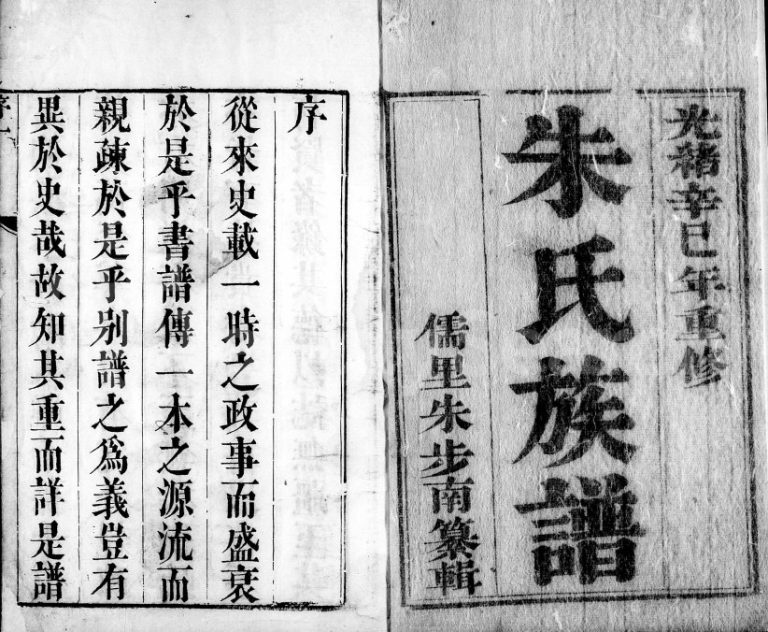 光緒辛巳年重修
朱氏族譜
儒里朱步南纂輯
序
從來史載一時之政事而盛衰
於是乎書譜傳一本之源流而
親疎於是乎别譜之爲義豈有
異於史哉故知其重而詳是譜
序一